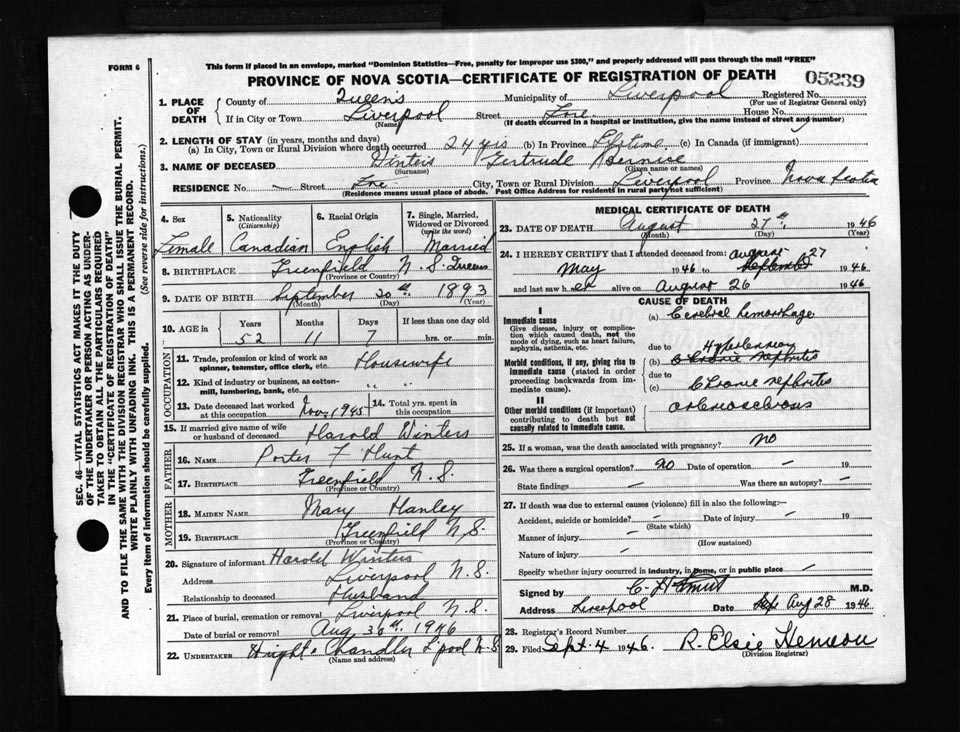 FORM 6
This form if placed in an envelope, marked "Dominion Statistics—Free, penalty for improper use $300," and properly addressed will pass through the mail "FREE"
PROVINCE OF NOVA SCOTIA—CERTIFICATE OF REGISTRATION OF DEATH 05239
1. PLACE OF DEATH
County of Queens Municipality of Liverpool Registered No.
(For use of Registrar General only)
If in City or Town Liverpool Street House No.
(Name) (If death occurred in a hospital or institution, give the name instead of street and number)
2. LENGTH OF STAY (in years, months and days)
(a) In City, Town or Rural Division where death occurred 24 yrs (b) In Province Lifetime (c) In Canada (if immigrant)
3. NAME OF DECEASED Winters Gertrude Bernice
(Surname) (Given name or names)
RESIDENCE No. — Street City, Town or Rural Division Liverpool Province Nova Scotia
(Residence means usual place of abode. Post Office Address for residents in rural parts not sufficient)
4. Sex Female
5. Nationality (Citizenship) Canadian
6. Racial Origin English
7. Single, Married, Widowed or Divorced (write the word) Married
8. BIRTHPLACE Greenfield N. S. Queens
(Province or Country)
9. DATE OF BIRTH September 20th 1893
(Month) (Day) (Year)
10. AGE in Years Months Days If less than one day old
52 11 7 hrs. or min.
OCCUPATION
11. Trade, profession or kind of work as spinner, teamster, office clerk, etc. Housewife
12. Kind of industry or business, as cotton-mill, lumbering, bank, etc. " "
13. Date deceased last worked at this occupation Nov. 1945
14. Total yrs. spent in this occupation
15. If married give name of wife or husband of deceased Harold Winters
FATHER
16. NAME Porter F Hunt
17. BIRTHPLACE Greenfield N. S.
(Province or Country)
MOTHER
18. MAIDEN NAME Mary Hanley
19. BIRTHPLACE Greenfield N.S.
(Province or Country)
20. Signature of informant Harold Winters
Address Liverpool N. S.
Relationship to deceased Husband
21. Place of burial, cremation or removal Liverpool N. S.
Date of burial or removal Aug. 30th. 1946
22. UNDERTAKER Chandler L'pool N.S
(Name and address)
MEDICAL CERTIFICATE OF DEATH
23. DATE OF DEATH August 27th 1946
(Month) (Day) (Year)
24. I HEREBY CERTIFY that I attended deceased from: august 27
May 1946 to September 1946
and last saw her alive on August 26 1946
CAUSE OF DEATH
I
Immediate cause
Give disease, injury or complication which caused death, not the mode of dying, such as heart failure, asphyxia, asthenia, etc.
(a) Cerebral hemorrhage
due to Hypertension
Morbid conditions, if any, giving rise to immediate cause (stated in order proceeding backwards from immediate cause).
(b) Chronic nephritis
due to
(c) Chronic nephritis
II
Other morbid conditions (if important) contributing to death but not causally related to immediate cause.
arteriosclerosis
25. If a woman, was the death associated with pregnancy? NO
26. Was there a surgical operation? NO Date of operation — 19
State findings — Was there an autopsy? —
27. If death was due to external causes (violence) fill in also the following:—
Accident, suicide or homicide? — Date of injury — 19
(State which)
Manner of injury —
(How sustained)
Nature of injury —
Specify whether injury occurred in industry, in home, or in public place —
Signed by M.D.
Address Liverpool Date Sept Aug 28 1946
28. Registrar's Record Number
29. Filed Sept. 4 1946. R. Elsie
(Division Registrar)
SEC. 46—VITAL STATISTICS ACT MAKES IT THE DUTY
OF THE UNDERTAKER OR PERSON ACTING AS UNDER-
TAKER TO OBTAIN ALL THE PARTICULARS REQUIRED
IN THE "CERTIFICATE OF REGISTRATION OF DEATH"
AND TO FILE THE SAME WITH THE DIVISION REGISTRAR WHO SHALL ISSUE THE BURIAL PERMIT.
WRITE PLAINLY WITH UNFADING INK. THIS IS A PERMANENT RECORD.
Every item of information should be carefully supplied. (See reverse side for instructions.)